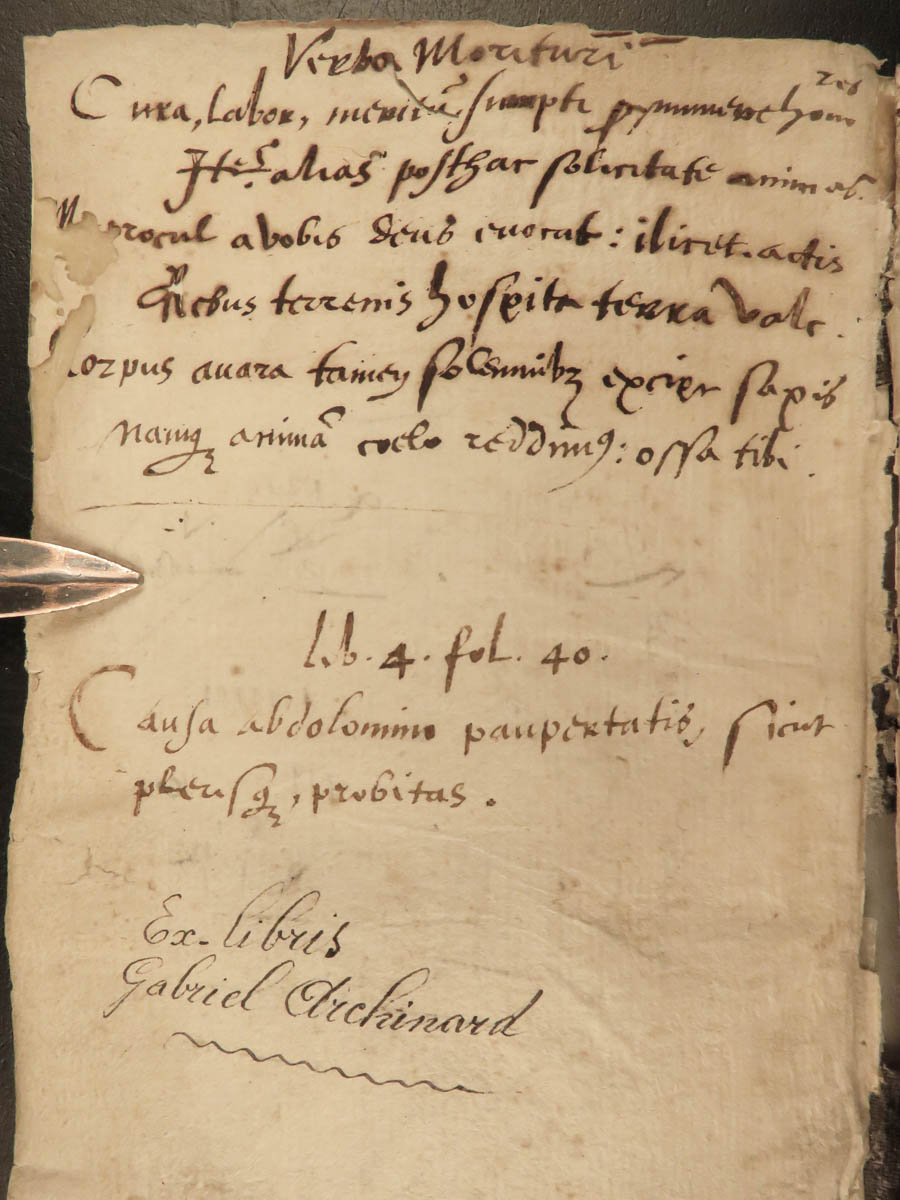 Verba Morituri
Cura, Labor, meritū, sumpti p munere honores
Ite, alias posthac solicitate animas.
Me procul a vobis deus evocat: ilicet actis
Rebus terrenis hospita terra vale.
Corpus avara tamen solemnibꝫ excipe saxis
Namqꝫ animā coelo reddimꝰ: ossa tibi.
lib. 4. fol. 40.
Causa abdolomino paupertatis, sicut
plerisqꝫ, probitas.
Ex-libris
Gabriel Archinard